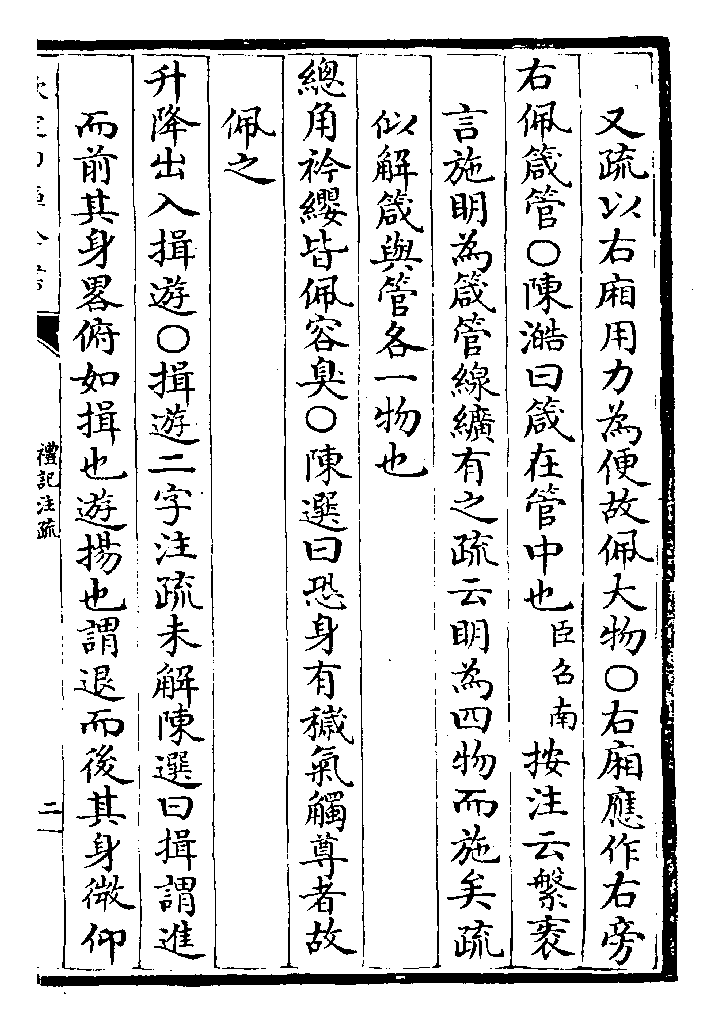 又疏以右廂用力為便故佩大物○右廂應作右旁
右佩箴管○陳澔曰箴在管中也臣召南按注云繫袠
言施明為箴管線纊有之疏云明為四物而施矣疏
似解箴與管各一物也
總角衿纓皆佩容臭○陳選曰恐身有穢氣觸尊者故
佩之
升降出入揖遊○揖遊二字注疏未解陳選曰揖謂進
而前其身畧俯如揖也遊揚也謂退而後其身微仰
禮記注疏
二